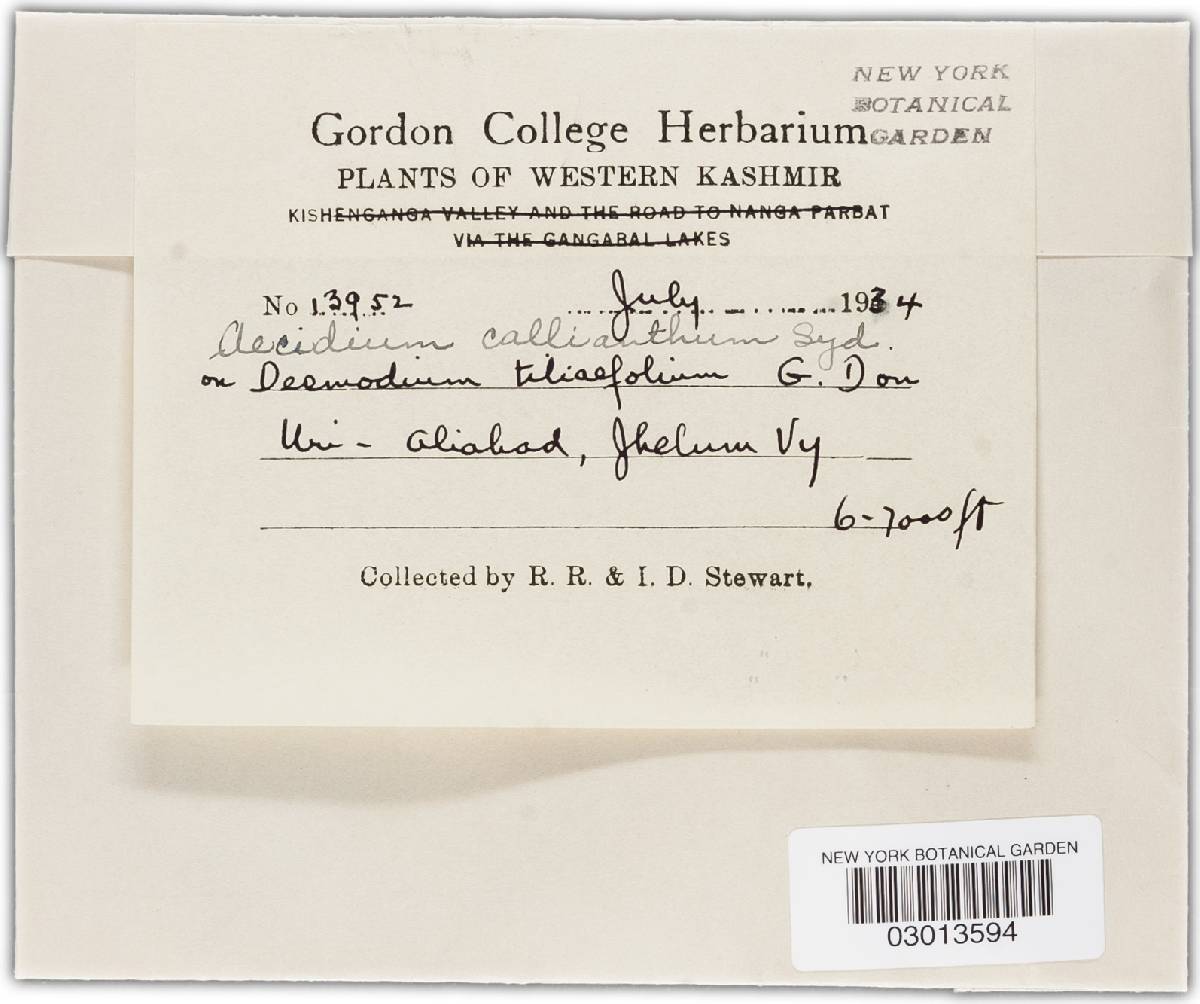 NEW YORK
BOTANICAL
GARDEN
Gordon College Herbarium
PLANTS OF WESTERN KASHMIR
KISHENGANGA VALLEY AND THE ROAD TO NANGA PARBAT
VIA THE GANGABAL LAKES
No 13952 July 1934
Aecidium callianthum Syd.
on Desmodium tiliaefolium G. Don
Uri - Aliabad, Jhelum Vy
6-7000 ft
Collected by R. R. & I. D. Stewart.
NEW YORK BOTANICAL GARDEN
03013594